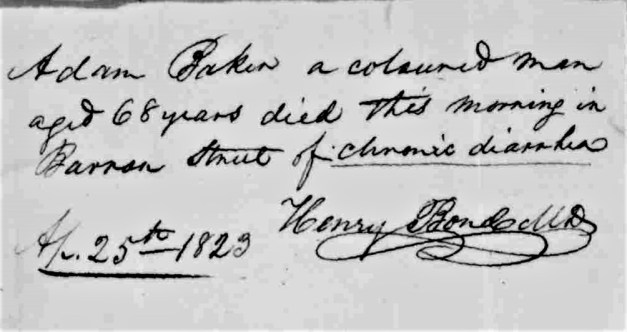 Adam Baker a coloured man
aged 68 years died this morning in
Barron Street of chronic diarrhea
Henry Bond MD
Ap. 25th 1823